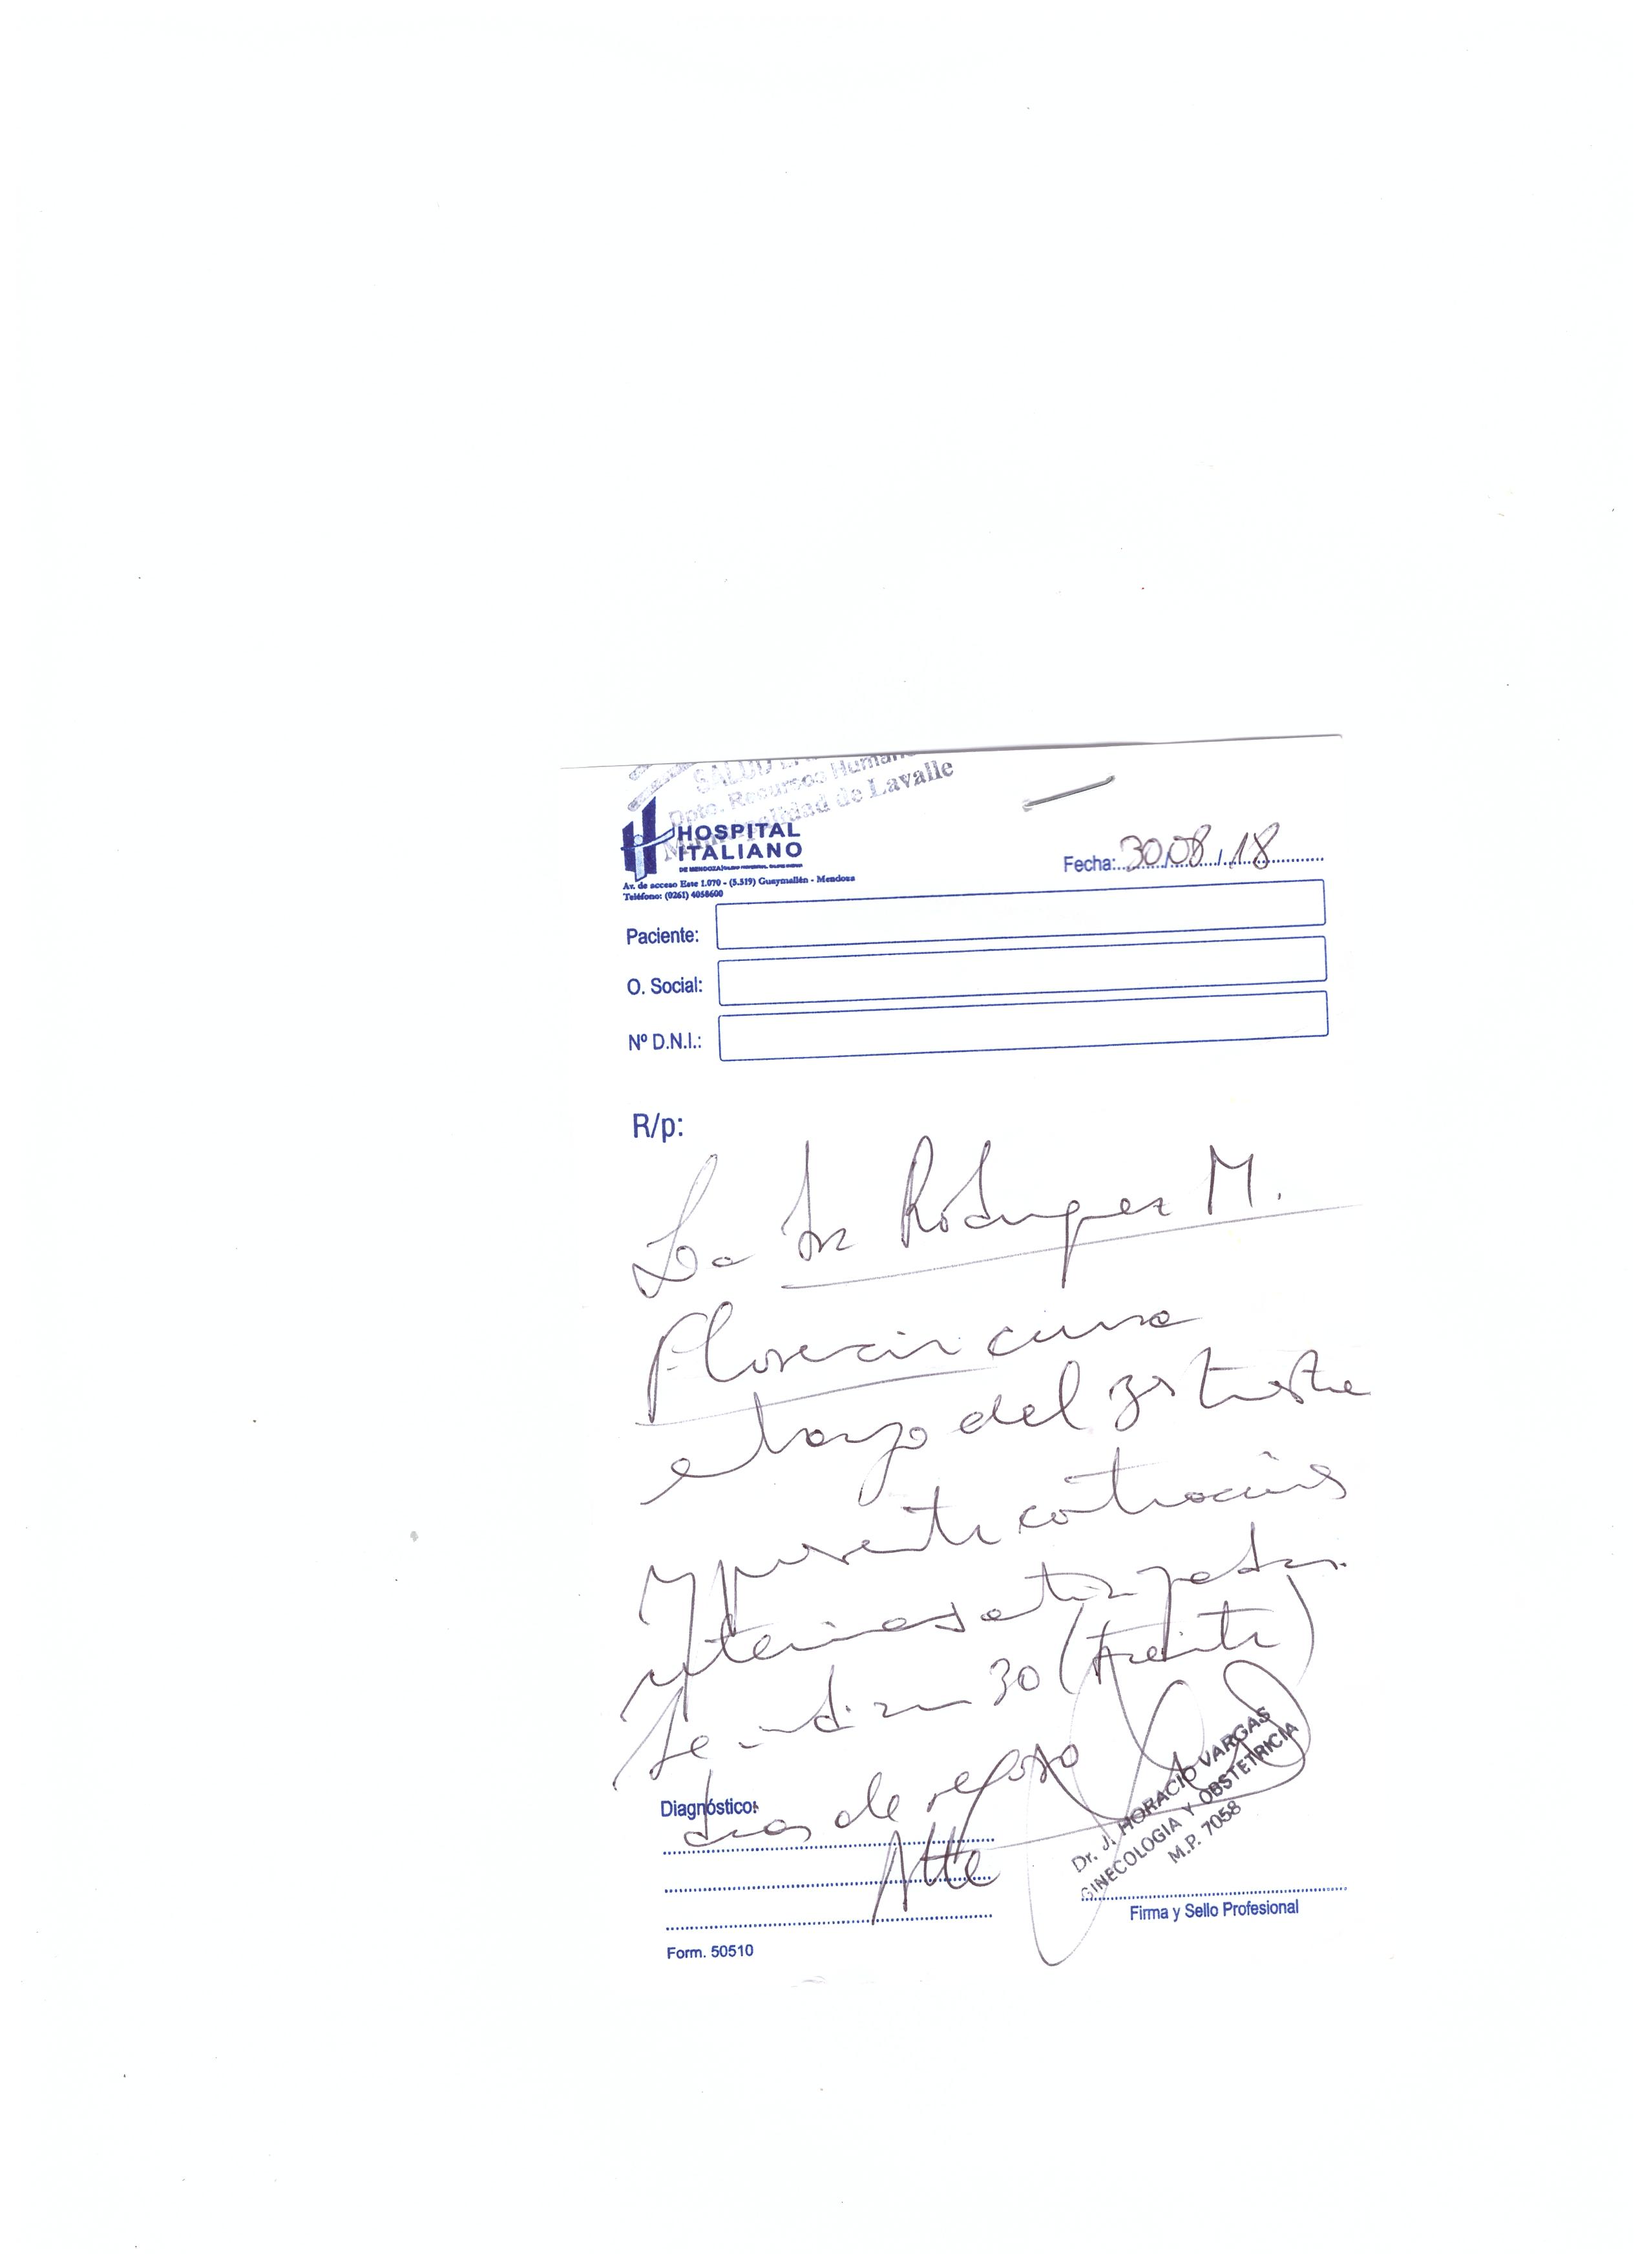 SALUD
Dpto. Recursos Human
Municipalidad de Lavalle
HOSPITAL
ITALIANO
DE MENDOZA
Av. de acceso Este 1.070 - (5.519) Guaymallén - Mendoza
Teléfono: (0261) 4058600
Fecha: 30/08/18
Paciente:
O. Social:
Nº D.N.I.:
R/p:
La Sra Rodriguez M.
Florencia cursa
embarazo del 3er trimestre
y presenta contracciones
uterinas
Se indican 30 (treinta)
dias de reposo
Diagnóstico:
Atte
Dr. J. HORACIO VARGAS
GINECOLOGIA Y OBSTETRICIA
M.P. 7058
Firma y Sello Profesional
Form. 50510